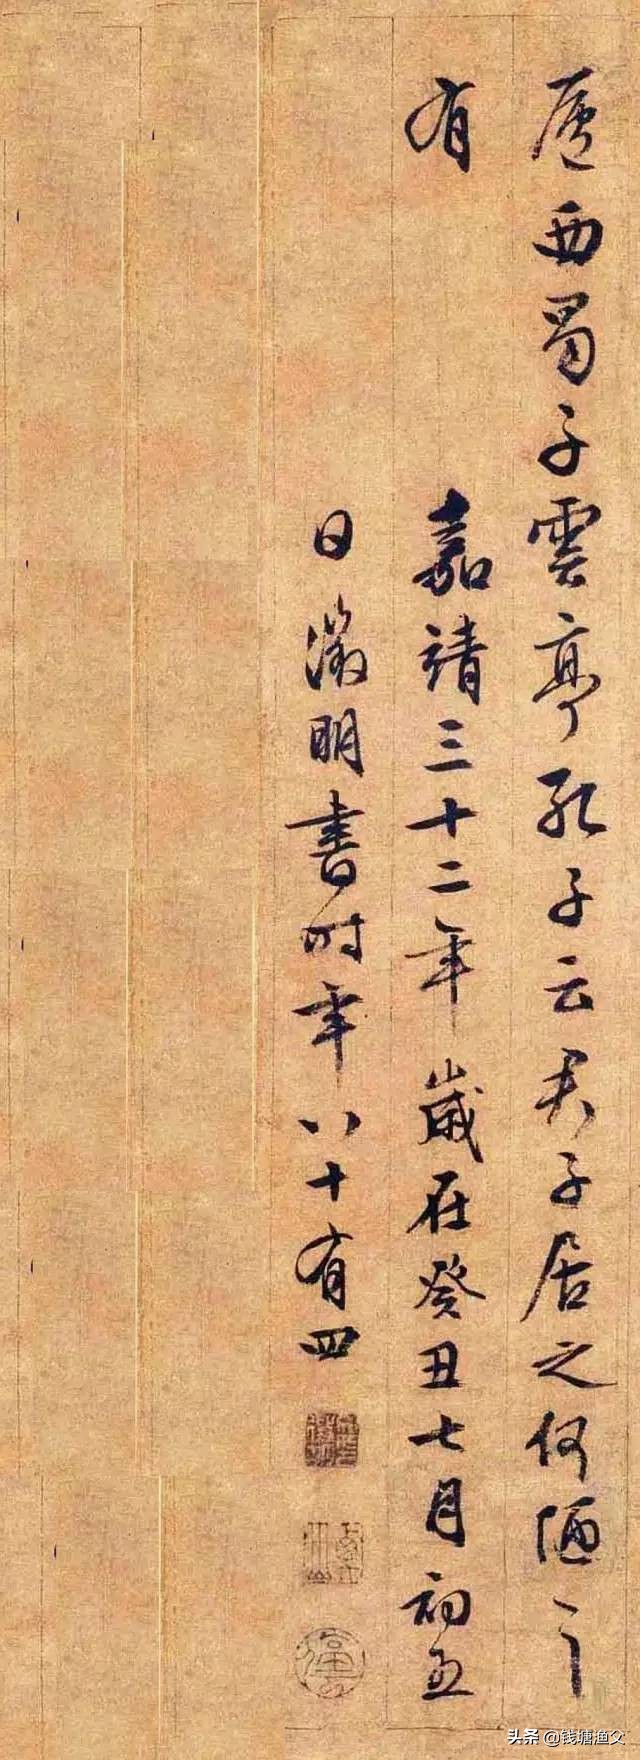 廬西蜀子雲亭孔子云君子居之何陋之
有
嘉靖三十二年歲在癸丑七月初五
日徵明書時年八十有四
头条 @钱塘渔父